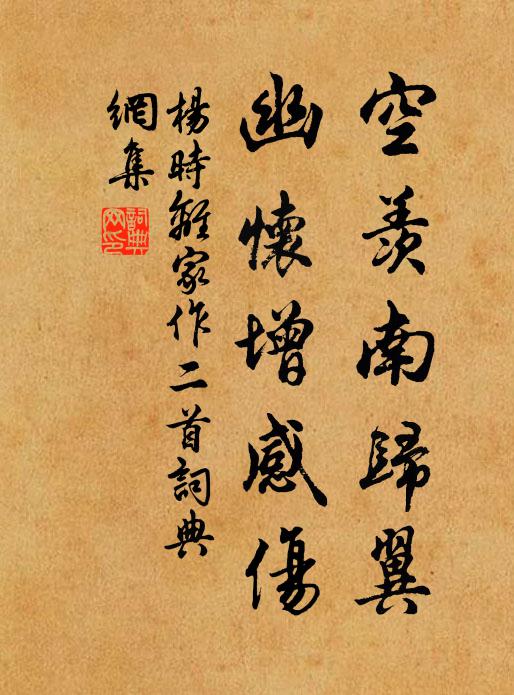 空羨南歸翼
幽懷增感傷
楊時離家作二首詞典
網集
詞典網印